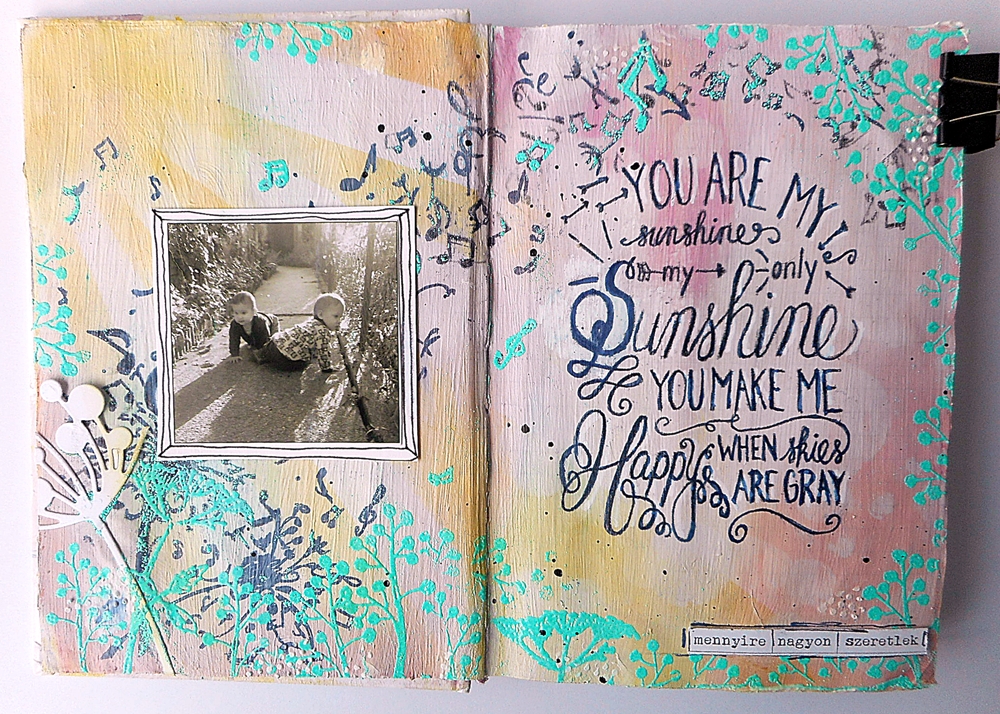 YOU ARE MY
sunshine
my only
Sunshine
YOU MAKE ME
Happy WHEN skies
ARE GRAY
mennyire nagyon szeretlek